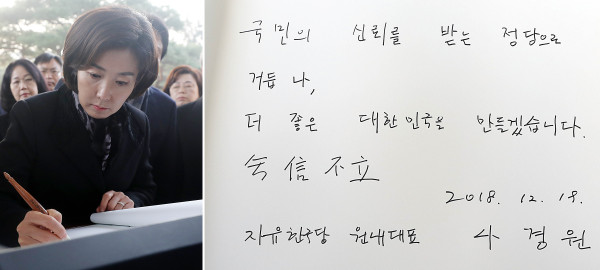 국민의 신뢰를 받는 정당으로
거듭 나,
더 좋은 대한민국을 만들겠습니다.
信不立
2018. 12. 18.
자유한국당 원내대표 나경원